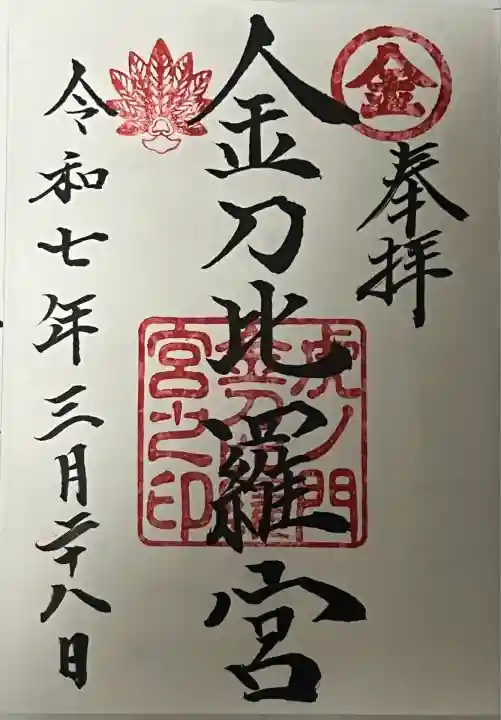 金
奉拝
金刀比羅宮
虎ノ門
金刀比羅
宮之印
令和七年三月二十八日